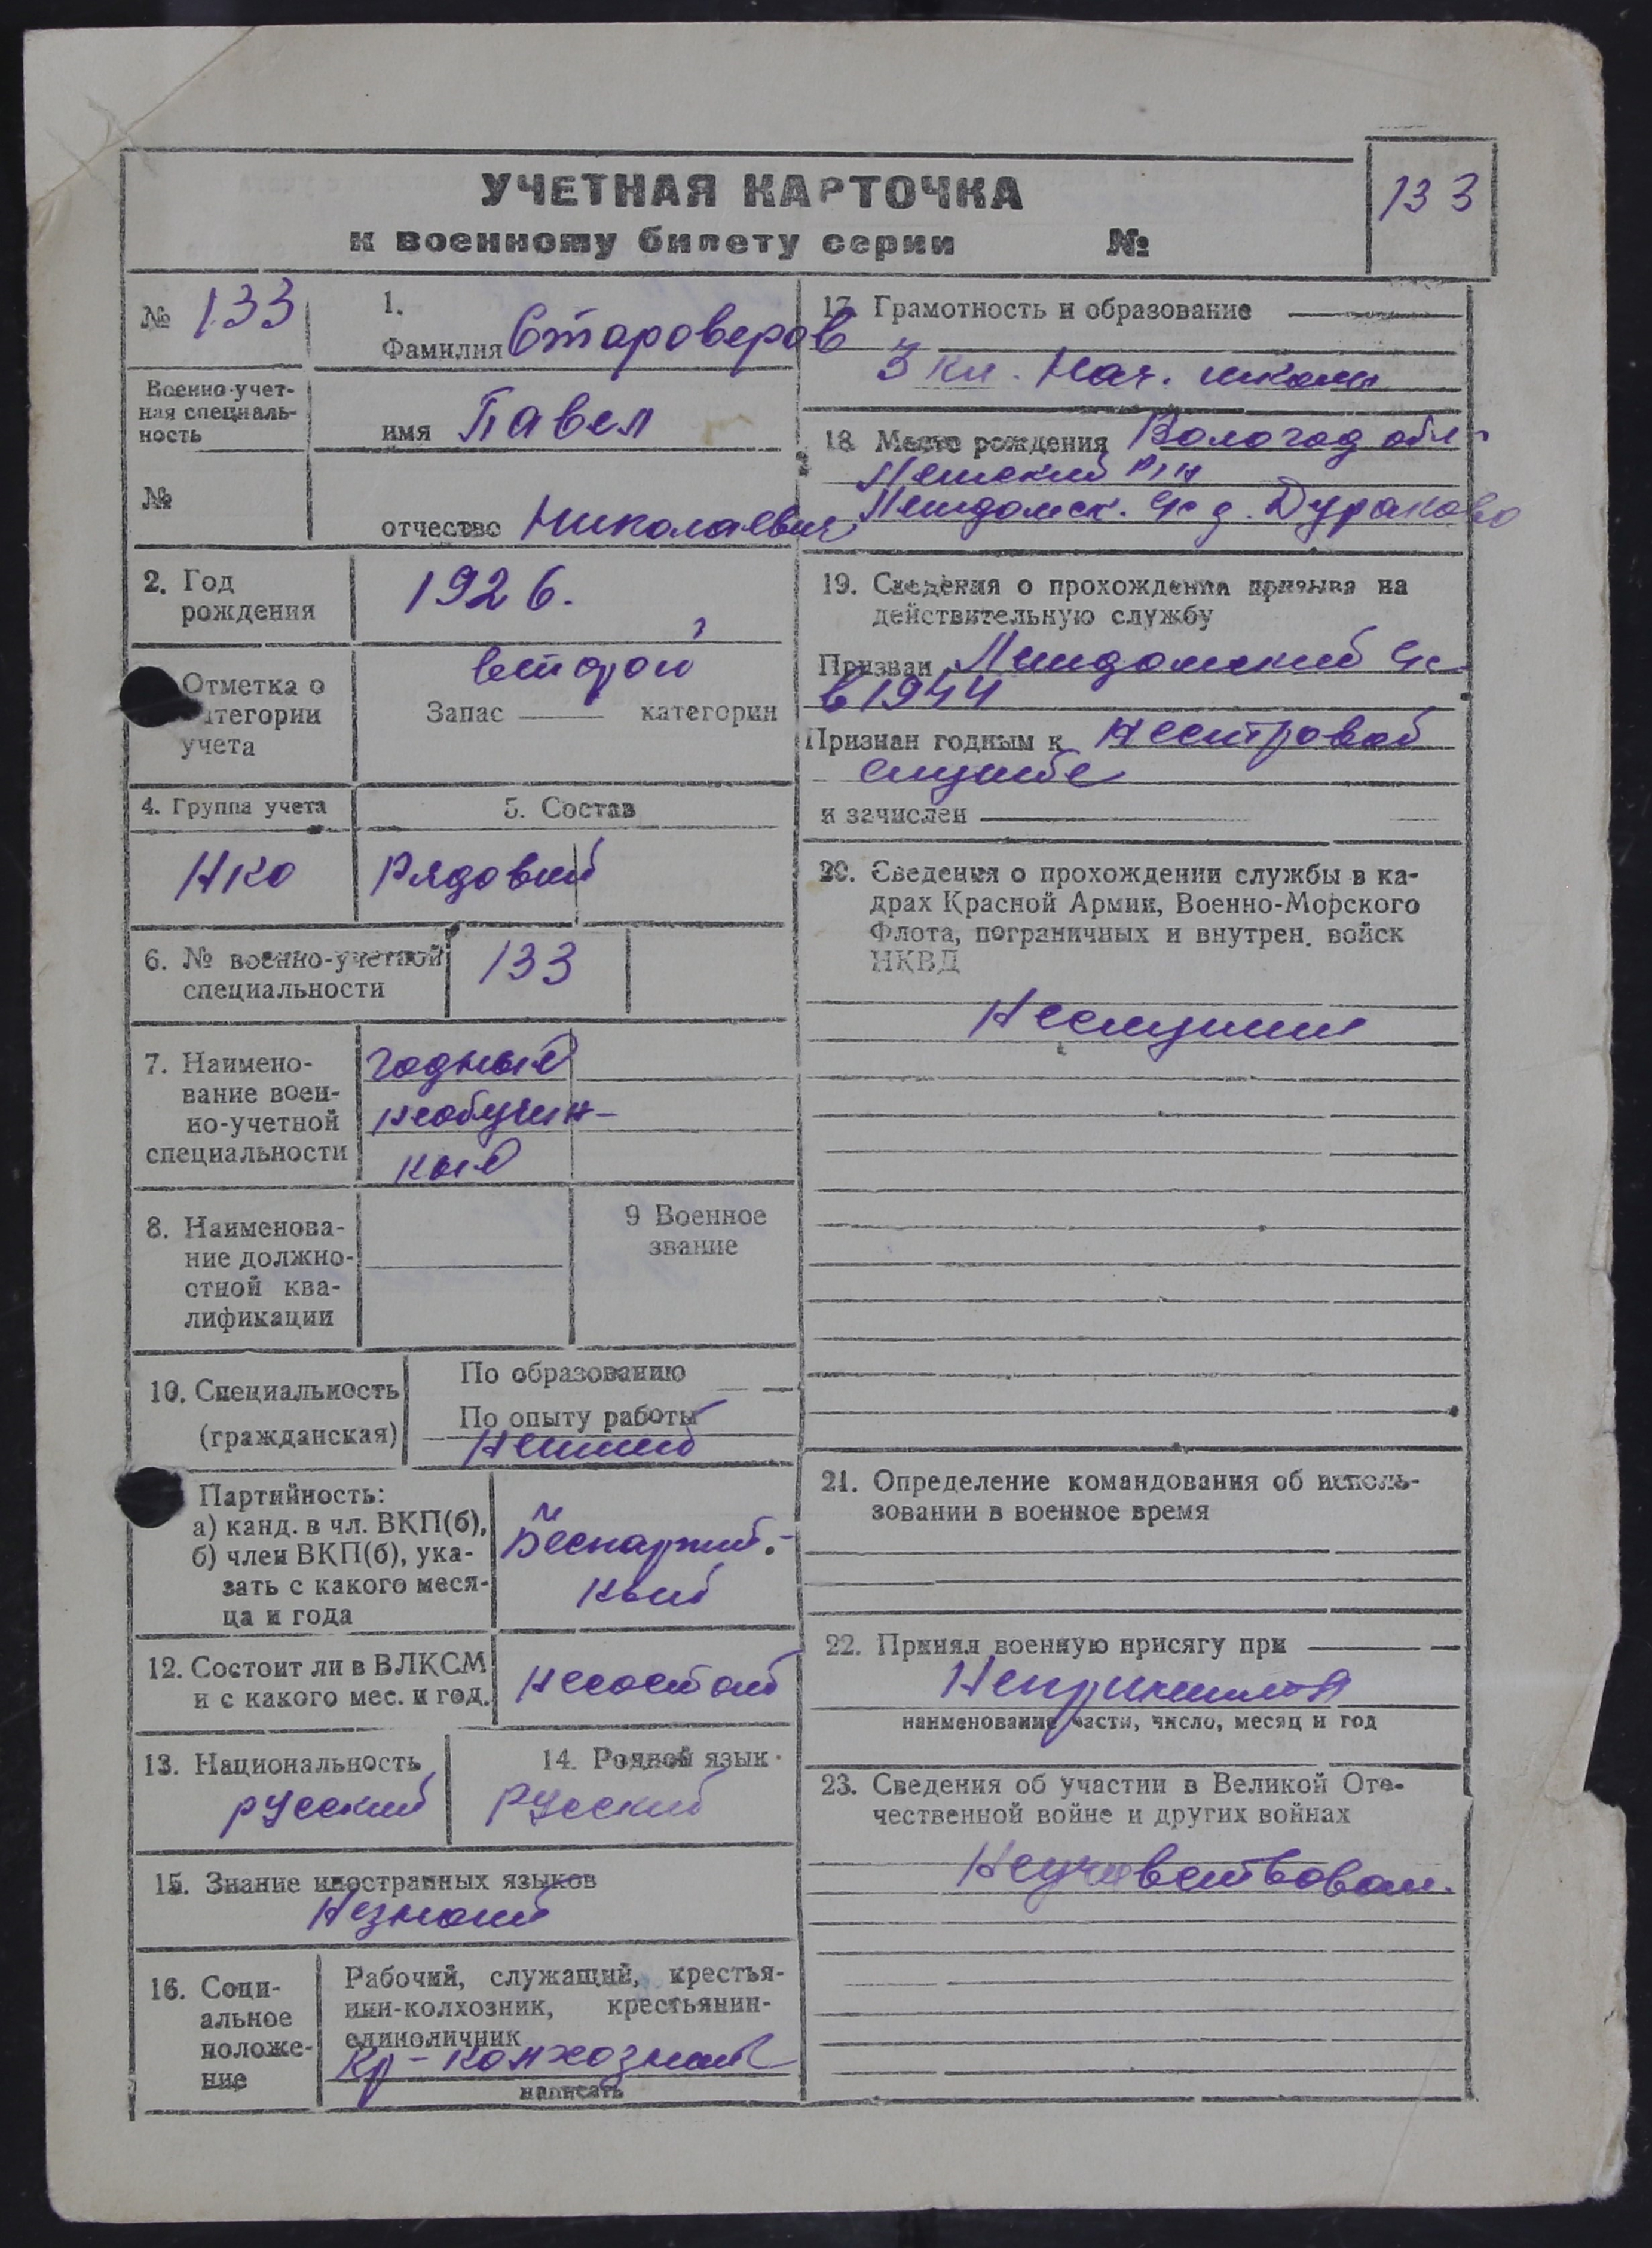 УЧЕТНАЯ КАРТОЧКА
к военному билету серии №
133
№ 133
Военно-учет-
ная специаль-
ность
№
1.
Фамилия Староверов
имя Павел
отчество Николаевич
2. Год
рождения
1926.
Отметка о
категории
учета
второй
Запас категории
4. Группа учета
5. Состав
НКО
Рядовый
6. № военно-учетной
специальности
133
7. Наимено-
вание воен-
но-учетной
специальности
годный
необучен-
ный
8. Наименова-
ние должно-
стной ква-
лификации
9 Военное
звание
10. Специальность
(гражданская)
По образованию
По опыту работы
Партийность:
а) канд. в чл. ВКП(б),
б) член ВКП(б), ука-
зать с какого меся-
ца и года
Беспартий.-
ный
12. Состоит ли в ВЛКСМ
и с какого мес. и год.
несостоит
13. Национальность
русский
14. Родной язык
Русский
15. Знание иностранных языков
Незнает
16. Соци-
альное
положе-
ние
Рабочий, служащий, крестья-
нин-колхозник, крестьянин-
единоличник
Кр-колхозник
написать
17. Грамотность и образование
3 кл. Нач. школы
18 Место рождения Вологод обл
р/н
д. Дураково
19. Сведения о прохождении призыва на
действительную службу
Призван
в 1944
Признан годным к нестровой
службе
и зачислен
20. Сведения о прохождении службы в ка-
драх Красной Армии, Военно-Морского
Флота, пограничных и внутрен. войск
НКВД
Неслужил
21. Определение командования об исполь-
зовании в военное время
22. Принял военную присягу при
Непринимал
наименование части, число, месяц и год
23. Сведения об участии в Великой Оте-
чественной войне и других войнах
Неучавствовал.